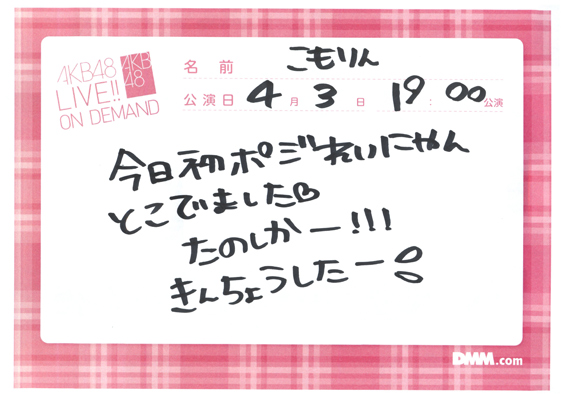 AKB48
LIVE!!
ON DEMAND
AKB
48
名前 こもりん
公演日 4月3日 19:00公演
今日初ポジれいにゃん
とこでました♡
たのしかー!!!
きんちょうしたー
DMM.com